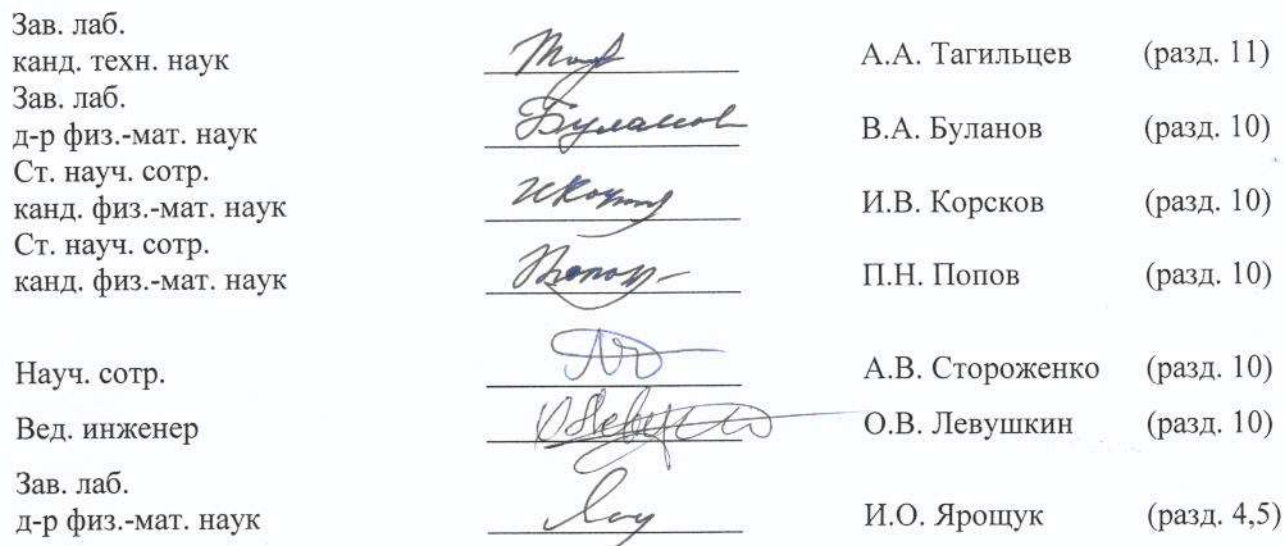 Зав. лаб.
канд. техн. наук А.А. Тагильцев (разд. 11)
Зав. лаб.
д-р физ.-мат. наук Буланов В.А. Буланов (разд. 10)
Ст. науч. сотр.
канд. физ.-мат. наук И.В. Корсков (разд. 10)
Ст. науч. сотр.
канд. физ.-мат. наук П.Н. Попов (разд. 10)
Науч. сотр. А.В. Стороженко (разд. 10)
Вед. инженер О.В. Левушкин (разд. 10)
Зав. лаб.
д-р физ.-мат. наук И.О. Ярощук (разд. 4,5)